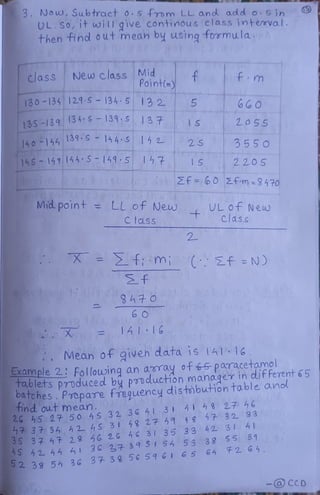 3. Now, Subtract 0.5 from LL and add 0.5 in
UL. So, it will give continous class interval.
then find out mean by using formula,
class New class Mid Point(m) f f.m
130-134 129.5 - 134.5 132 5 660
135-139 134.5 - 139.5 137 15 2055
140-144 139.5 - 144.5 142 25 3550
145-149 144.5 - 149.5 147 15 2205
Σf = 60 Σf.m = 8470
Midpoint = LL of New Class + UL of New Class
2
∴ X̄ = Σ fi mi (∵ Σf = N)
Σf
= 8470
60
∴ X̄ = 141.16
∴ Mean of given data is 141.16
Example 2: Following an array of 65 paracetamol
tablets produced by production manager in different 65
batches. Prepare frequency distribution table and
find out mean.
26 45 27 50 45 32 36 41 31 41 48 27 46
47 37 34 42 45 31 48 27 49 48 47 32 33
35 37 47 28 46 26 46 31 35 33 42 31 41
45 42 44 41 36 37 39 51 54 53 38 55 39
52 38 54 36 37 38 56 59 61 65 64 72 64.
-@CCD